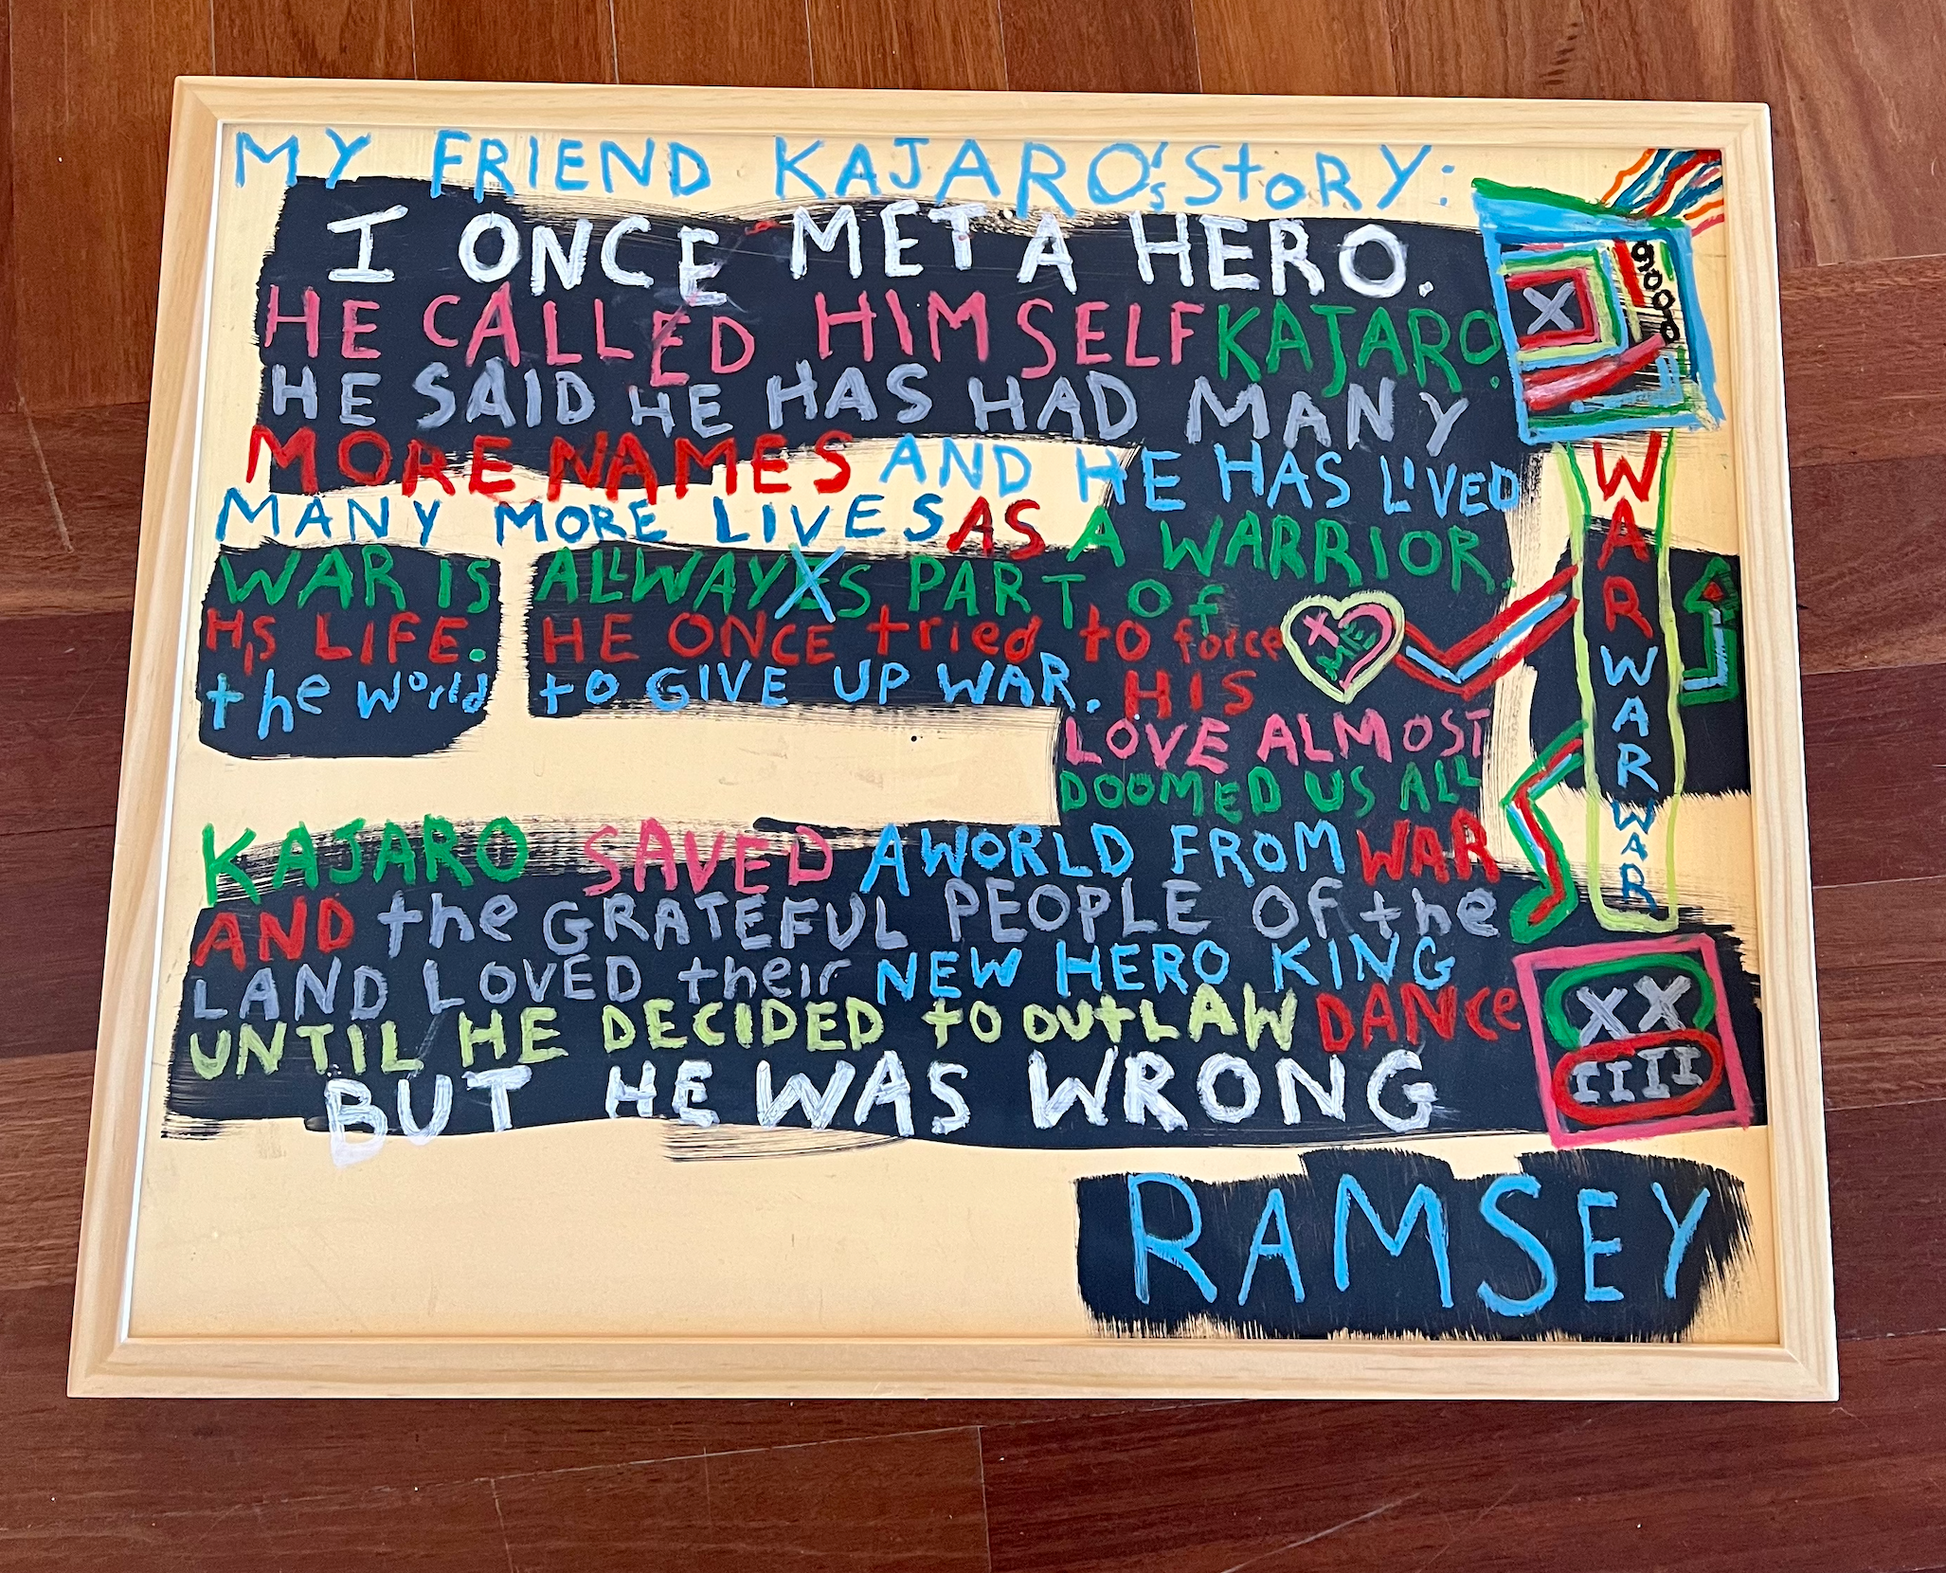 MY FRIEND KAJARO'S StORY:
I ONCE MET A HERO.
HE CALLED HIMSELF KAJARO.
HE SAID HE HAS HAD MANY
MORE NAMES AND HE HAS LIVED
MANY MORE LIVES AS A WARRIOR.
WAR IS ALLWAYXS PART Of
HIS LIFE. HE ONCE tried to force
the World to GIVE UP WAR. HIS
LOVE ALMOST
DOOMED US ALL
KAJARO SAVED A WORLD FROM WAR
AND the GRATEFUL PEOPLE OF the
LAND LOVED their NEW HERO KING
UNTIL HE DECIDED to OUtLAW DANCe
BUT HE WAS WRONG
RAMSEY
X
X
ME
WAR
WAR
WAR
WAR
XX
IIII